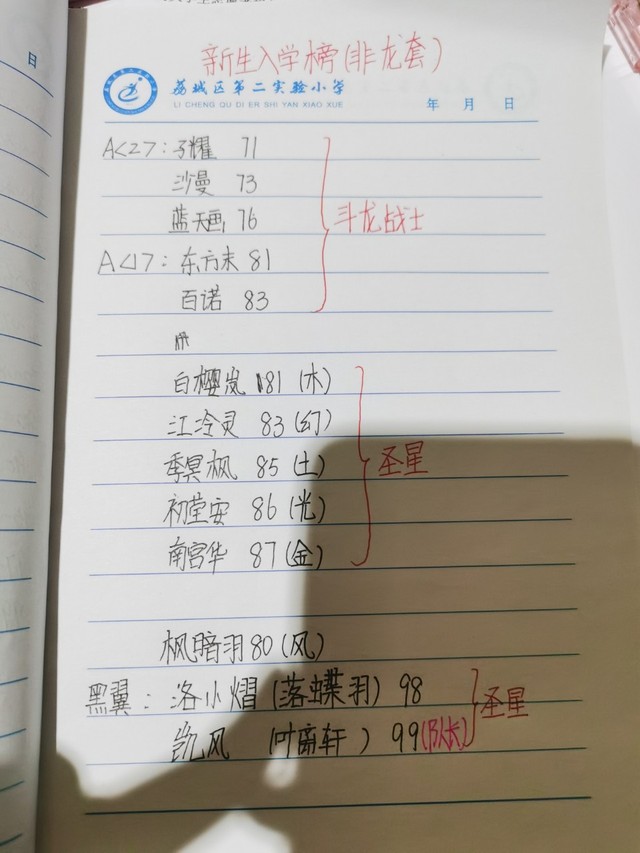 日
新生入学榜(非龙套)
荔城区第二实验小学
LI CHENG QU DI ER SHI YAN XIAO XUE
年 月 日
A<27:子耀 71
沙曼 73
蓝天画 76
斗龙战士
A<17:东方末 81
百诺 83
白樱岚 181 (木)
江冷灵 83 (幻)
季冥枫 85 (土)
圣星
初堂安 86 (光)
南宫华 87 (金)
枫暗羽 80 (风)
黑翼:洛小熠 (落蝶羽) 98
圣星
凯风 (叶帝轩) 99 (队长)